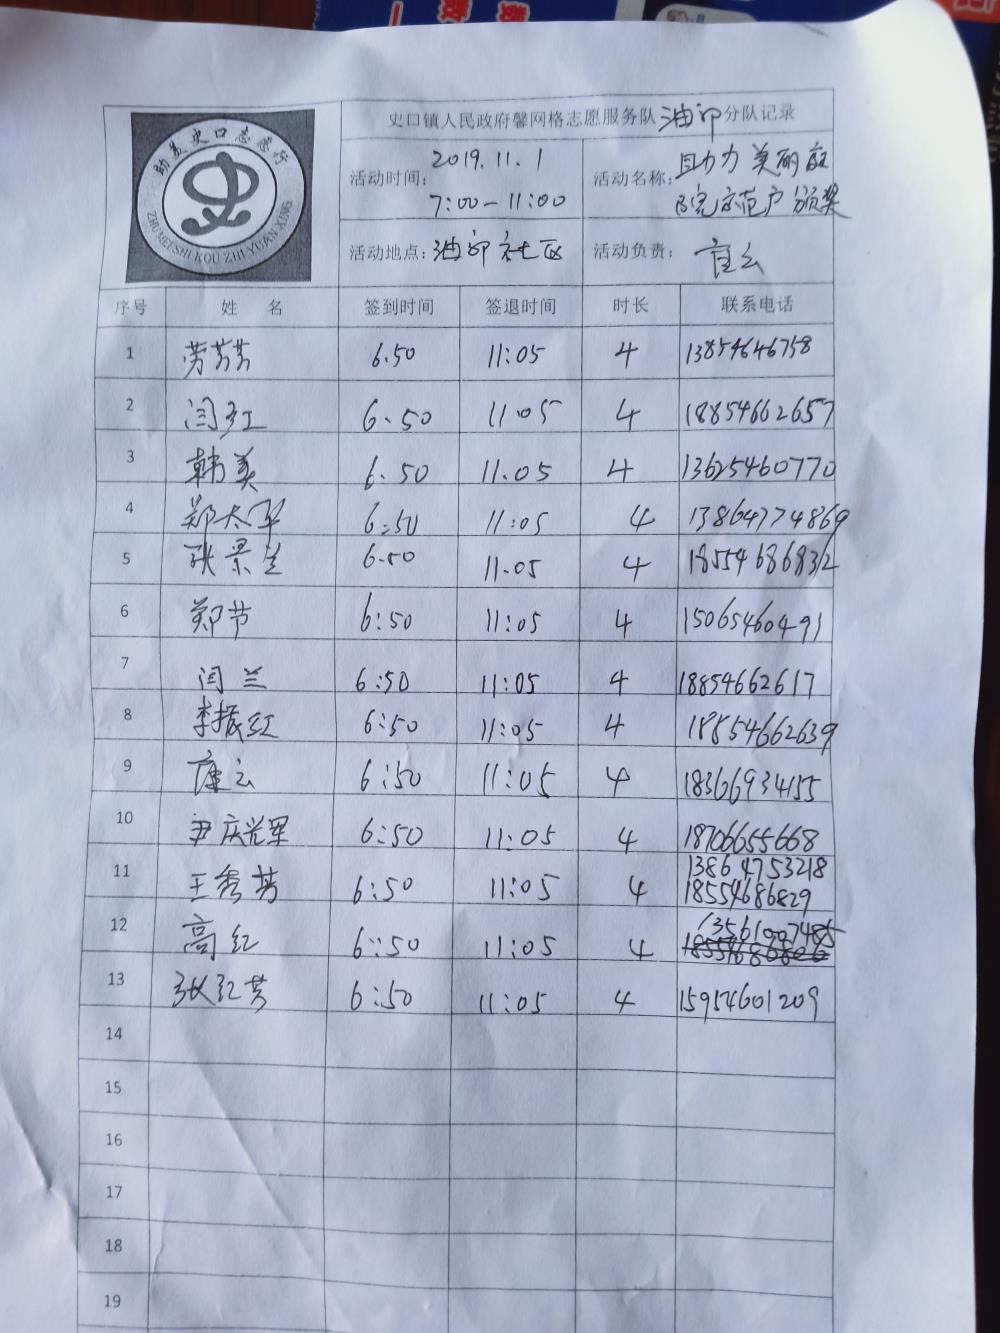 助美史口志愿行
ZHU MEI SHI KOU ZHI YUAN XING
史口镇人民政府馨网格志愿服务队油邱分队记录
活动时间: 2019.11.1
7:00-11:00
活动名称: 助力美丽庭
院示范户颁奖
活动地点: 油邱社区
活动负责:
序号 姓 名 签到时间 签退时间 时长 联系电话
1 劳芳芳 6.50 11:05 4 13854646758
2 闫红 6.50 11.05 4 18854662657
3 韩美 6.50 11.05 4 13625460770
4 郑太军 6:50 11:05 4 13864774869
5 张景兰 6.50 11.05 4 18554686832
6 郑节 6:50 11:05 4 15065460491
7 闫兰 6:50 11:05 4 18854662617
8 李振红 6:50 11:05 4 18854662639
9 6:50 11:05 4 18366934155
10 尹庆军 6:50 11:05 4 18706655668
11 王秀芳 6:50 11:05 4 13864753218
18554686829
12 高红 6:50 11:05 4 13561007485
13 张红芳 6:50 11:05 4 15954601209
14
15
16
17
18
19